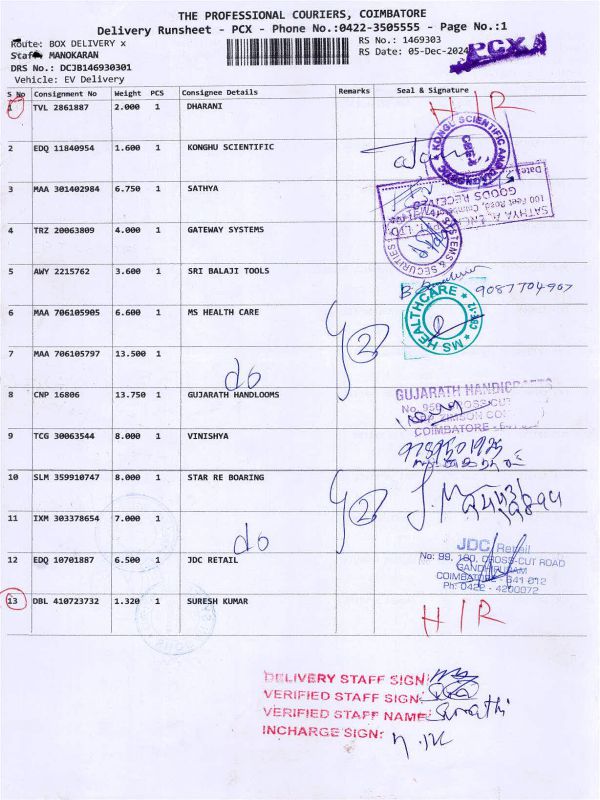 THE PROFESSIONAL COURIERS, COIMBATORE
Delivery Runsheet - PCX - Phone No.:0422-3505555 - Page No.:1
Route: BOX DELIVERY x
RS No.: 1469303
Staff: MANOKARAN
RS Date: 05-Dec-2024
PCX
DRS No.: DCJB146930301
Vehicle: EV Delivery
S No Consignment No Weight PCS Consignee Details Remarks Seal & Signature
1 TVL 2861887 2.000 1 DHARANI H/R
2 EDQ 11840954 1.600 1 KONGHU SCIENTIFIC
3 MAA 301402984 6.750 1 SATHYA
GOODS RECEIVED
4 TRZ 20063809 4.000 1 GATEWAY SYSTEMS
5 AWY 2215762 3.600 1 SRI BALAJI TOOLS 9087704967
6 MAA 706105905 6.600 1 MS HEALTH CARE
MS HEALTHCARE
CBE-12
7 MAA 706105797 13.500 1 do 2
8 CNP 16806 13.750 1 GUJARATH HANDLOOMS
GUJARATH HANDICRAFTS
COIMBATORE
9 TCG 30063544 8.000 1 VINISHYA
10 SLM 359910747 8.000 1 STAR RE BOARING
11 IXM 303378654 7.000 1 do 2
12 EDQ 10701887 6.500 1 JDC RETAIL
JDC Retail
No: 99, 100, CROSS-CUT ROAD
GANDHIPURAM
COIMBATORE - 641 012
Ph: 0422 - 4200072
13 DBL 410723732 1.320 1 SURESH KUMAR H/R
DELIVERY STAFF SIGN:
VERIFIED STAFF SIGN:
VERIFIED STAFF NAME:
INCHARGE SIGN: